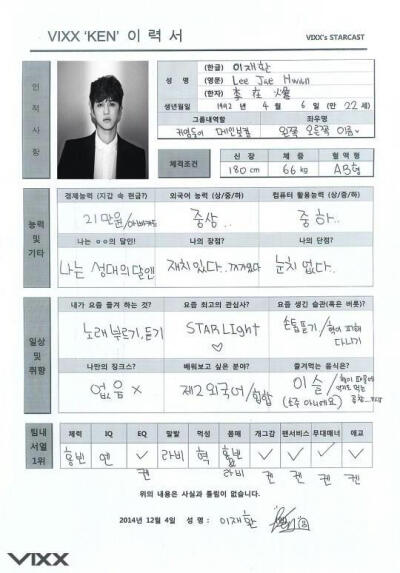 VIXX 'KEN' 이 력 서
VIXX's STARCAST
인적사항
성 명
(한글) 이재환
(영문) Lee Jae Hwan
(한자) 李 在 煥
생년월일 1992 년 4 월 6 일 (만 22 세)
그룹내역할 좌우명
귀염둥이 메인보컬 왼쪽 오른쪽 이름
체격조건
신 장 체 중 혈 액 형
180 cm 66 kg AB형
능력 및 기타
경제능력 (지갑 속 현금?) 외국어 능력 (상/중/하) 컴퓨터 활용능력 (상/중/하)
21만원/아빠카드 중상.. 중하..
나는 ㅇㅇ의 달인! 나의 장점? 나의 단점?
나는 성대의달인 재치있다.. 눈치 없다.
일상 및 취향
내가 요즘 즐겨 하는 것? 요즘 최고의 관심사? 요즘 생긴 습관(혹은 버릇)?
노래부르기, 듣기 STARLIGHT ♡ 손톱뜯기/ 다니기
나만의 징크스? 배워보고 싶은 분야? 즐겨먹는 음식은?
없음 × 제2외국어/힙합 이슬/ (소주 아니에요)
팀내 서열 1위
체력 IQ EQ 말발 먹성 몸매 개그감 팬서비스 무대매너 애교
홍빈 엔 ✓ 라비 혁 홍빈 ✓ ✓ ✓ ✓
켄 라비 켄 켄 켄 켄
위의 내용은 사실과 틀림이 없습니다.
2014년 12월 4일 성 명 : 이재환
VIXX